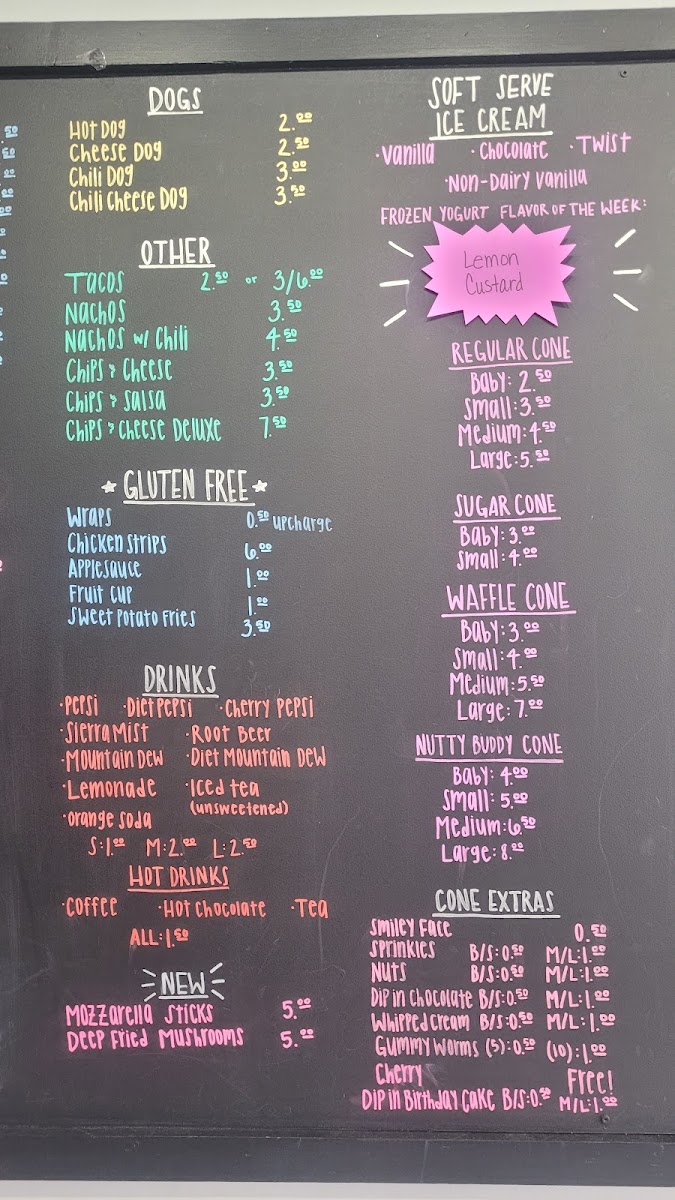 DOGS
HOT DOG 2.00
CHEESE DOG 2.50
CHILI DOG 3.00
CHILI CHEESE DOG 3.50
OTHER
TACOS 2.50 or 3/6.00
NACHOS 3.50
NACHOS W/ CHILI 4.50
CHIPS & CHEESE 3.50
CHIPS & SALSA 3.50
CHIPS & CHEESE DELUXE 7.50
★ GLUTEN FREE ★
WRAPS 0.50 upcharge
CHICKEN STRIPS 6.00
APPLESAUCE 1.00
FRUIT CUP 1.00
SWEET POTATO FRIES 3.50
DRINKS
·PEPSI ·DIET PEPSI ·CHERRY PEPSI
·SIERRA MIST ·ROOT BEER
·MOUNTAIN DEW ·DIET MOUNTAIN DEW
·LEMONADE ·ICED TEA
(unsweetened)
·ORANGE SODA
S:1.00 M:2.00 L:2.50
HOT DRINKS
·COFFEE ·HOT CHOCOLATE ·TEA
ALL:1.50
NEW
MOZZARELLA STICKS 5.00
DEEP FRIED MUSHROOMS 5.00
SOFT SERVE
ICE CREAM
·VANILLA ·CHOCOLATE ·TWIST
·NON-DAIRY VANILLA
FROZEN YOGURT FLAVOR OF THE WEEK:
Lemon
Custard
REGULAR CONE
Baby: 2.50
Small: 3.50
Medium: 4.50
Large: 5.50
SUGAR CONE
Baby: 3.00
Small: 4.00
WAFFLE CONE
Baby: 3.00
Small: 4.00
Medium: 5.50
Large: 7.00
NUTTY BUDDY CONE
Baby: 4.00
Small: 5.00
Medium: 6.50
Large: 8.00
CONE EXTRAS
SMILEY FACE 0.50
SPRINKLES B/S:0.50 M/L:1.00
NUTS B/S:0.50 M/L:1.00
DIP IN CHOCOLATE B/S:0.50 M/L:1.00
WHIPPED CREAM B/S:0.50 M/L:1.00
GUMMY WORMS (5):0.50 (10):1.00
CHERRY FREE!
DIP IN BIRTHDAY CAKE B/S:0.50 M/L:1.00